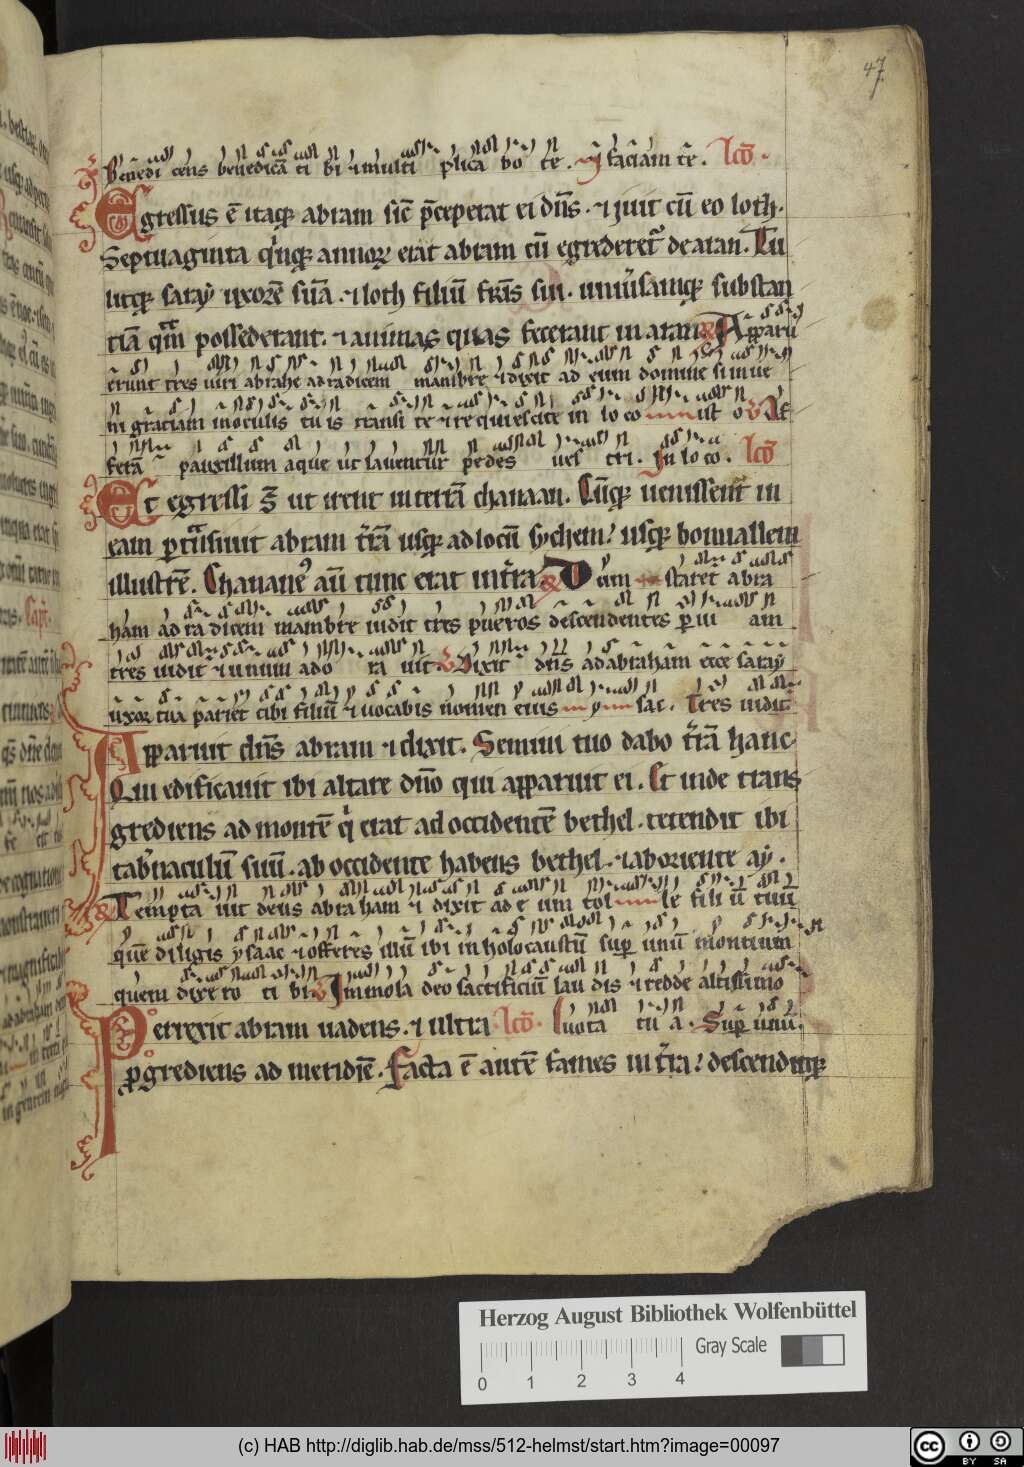 47
Benedi cens benedicā ti bi ⁊ multi plica bo te. faciam te. Lc̄o.
Egressus ē itaqꝫ abram sic̄ p̄ceperat ei dn̄s. ⁊ iuit cū eo loth.
Septuaginta qͥnqꝫ annoꝝ erat abram cū egrederet᷑ de aran. Tu
litqꝫ saray uxorē suā. ⁊ loth filiū fr̄is sui. uniu᷒samqꝫ substan
tiā qᷓm possederant. ⁊ animas quas fecerant in aran. Apparu
erunt tres uiri abrahe ad radicem mambre ⁊ dixit ad eum domine si inue
ni graciam in oculis tu is transi te ⁊ re quiescite in lo co ist o V Af
feram pauxillum aque ut lauentur pedes ves tri. In lo co. Lc̄o
Et egressi s̄t ut irent in terrā chanaan. Cūqꝫ uenissent in
eam ꝑtᷓnsiuit abram t̄rā usqꝫ ad locū sychem usqꝫ conuallem
illustrē. Chananeꝰ aū tunc erat in t̄ra. Dum staret abra
ham ad ra dicem mambre uidit tres pueros descendentes ꝑ ui am
tres uidit ⁊ unum ado ra uit. V Dixit dn̄s ad abraham ecce saray
uxor tua pariet tibi filiū ⁊ uocabis nomen eius y sac. Tres uidit
Apparuit dn̄s abram ⁊ dixit. Semini tuo dabo t̄rā hanc.
Qui edificauit ibi altare dn̄o qui apparuit ei. Et inde trans
grediens ad montē qͥ erat ad occidentē bethel. tetendit ibi
tab̄naculū suū. ab occidente habens bethel. ⁊ ab oriente ay.
Tempta uit deus abra ham ⁊ dixit ad e um tol le fili ū tuū
quē diligis ysaac ⁊ offeres illū ibi in holocaustū suꝑ unū montium
quem dixe ro ti bi V Immola deo sacrificiū lau dis ⁊ redde altissimo
Perrexit abram uadens. ⁊ ultra Lc̄o. uota tu a. Suꝑ unū.
ꝓgrediens ad meridiē. Facta ē autē fames in t̄ra descenditqꝫ
Herzog August Bibliothek Wolfenbüttel
Gray Scale
0 1 2 3 4
(c) HAB http://diglib.hab.de/mss/512-helmst/start.htm?image=00097
cc BY SA